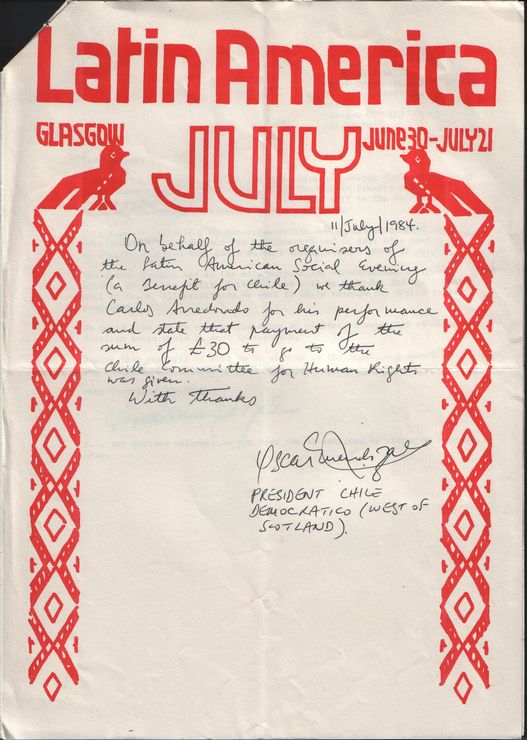 Latin America
GLASGOW
JULY
JUNE 30-JULY 21
11/July/1984.
On behalf of the organisers of
the Latin American Social Evening
(a Benefit for Chile) we thank
Carlos Arredondo for his performance
and state that payment of the
sum of £30 to go to the
Chile Committee for Human Rights
was given.
With thanks
Oscar Mendoza
PRESIDENT CHILE
DEMOCRATICO (WEST OF
SCOTLAND).